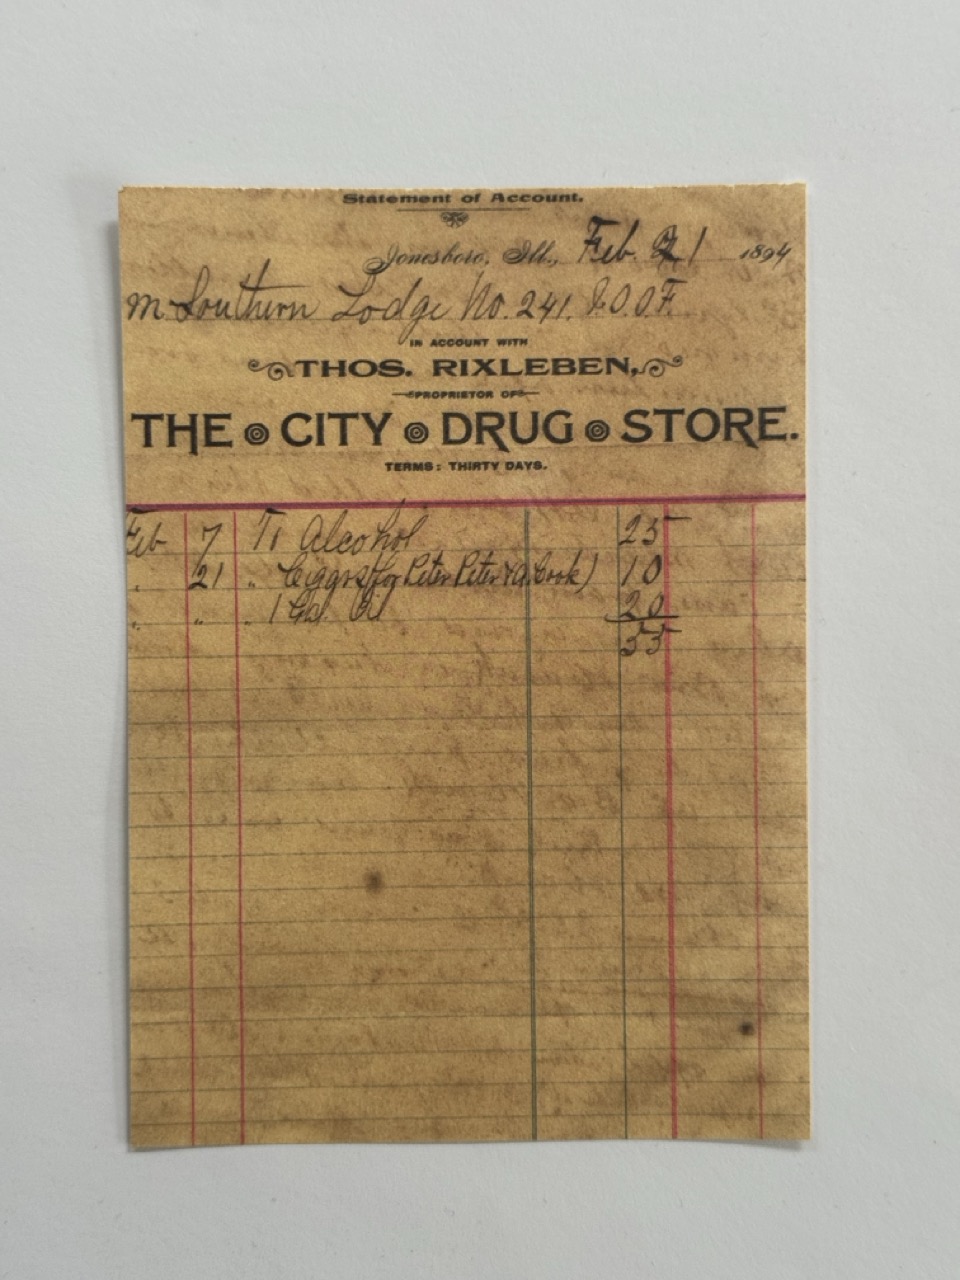 Statement of Account.
Jonesboro, Ill., Feb. 21 1894
M Southern Lodge No. 241. I.O.O.F.
IN ACCOUNT WITH
THOS. RIXLEBEN,
PROPRIETOR OF
THE CITY DRUG STORE.
TERMS: THIRTY DAYS.
Feb 7 To Alcohol 25
" 21 " Ciggrs (for Peter Peter & A. Cook) 10
" " " 1 Gal. Oil 20
55